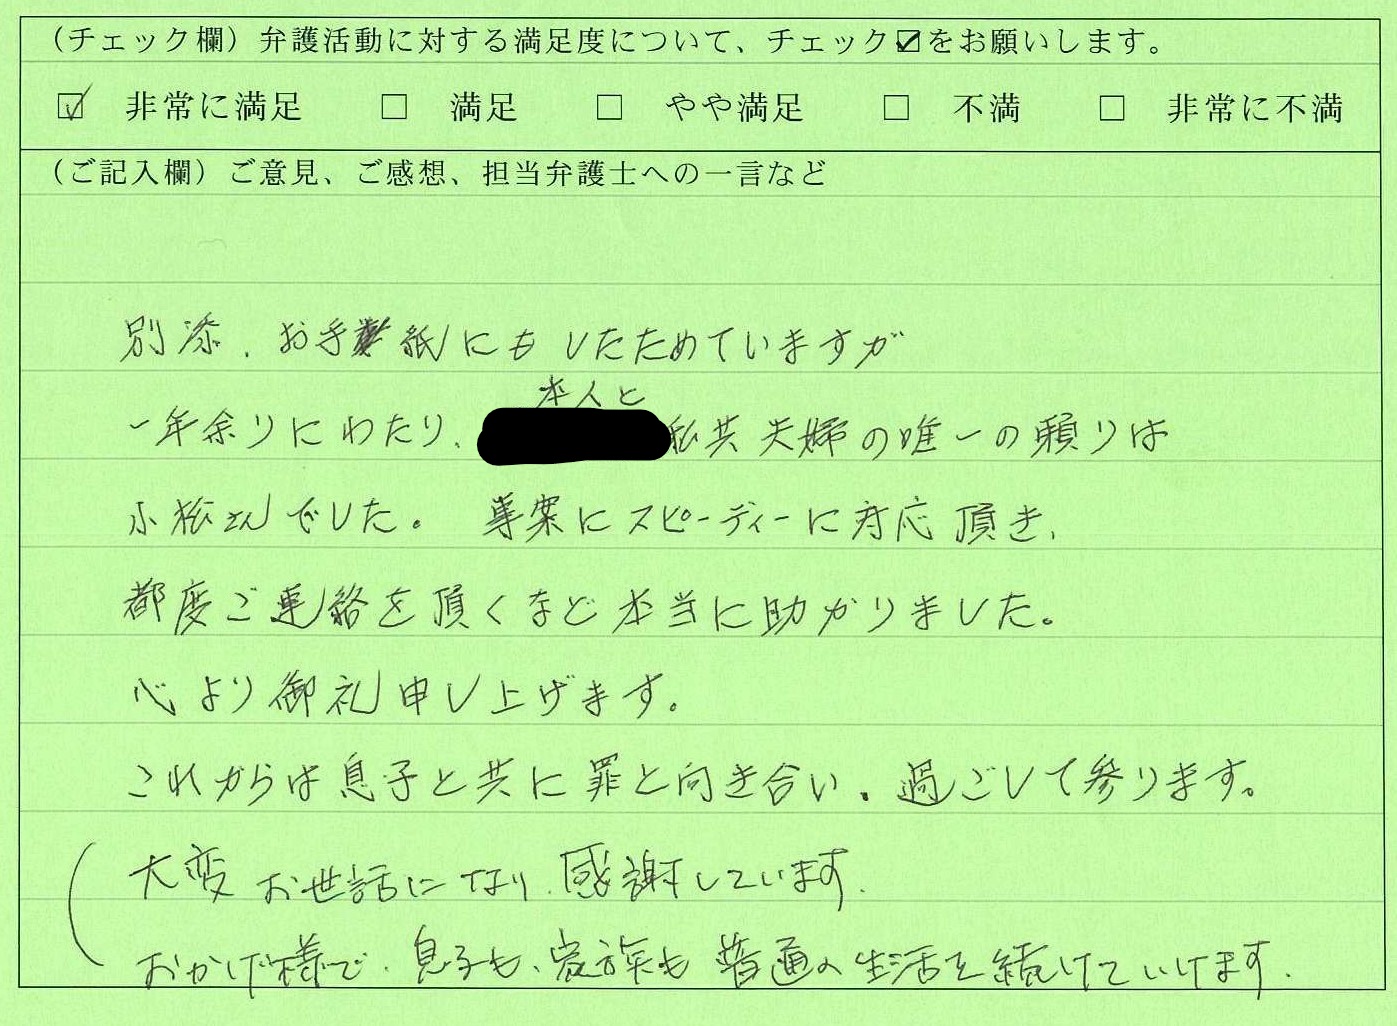 (チェック欄)弁護活動に対する満足度について、チェック☑をお願いします。
☑ 非常に満足 □ 満足 □ やや満足 □ 不満 □ 非常に不満
(ご記入欄)ご意見、ご感想、担当弁護士への一言など
別添、お手紙にもしたためていますが
本人と
一年余りにわたり、私共夫婦の唯一の頼りは
小松さんでした。事案にスピーディーに対応頂き、
都度ご連絡を頂くなど本当に助かりました。
心より御礼申し上げます。
これからは息子と共に罪と向き合い、過ごして参ります。
大変お世話になり、感謝しています。
おかげ様で、息子も、家族も普通の生活を続けていけます。